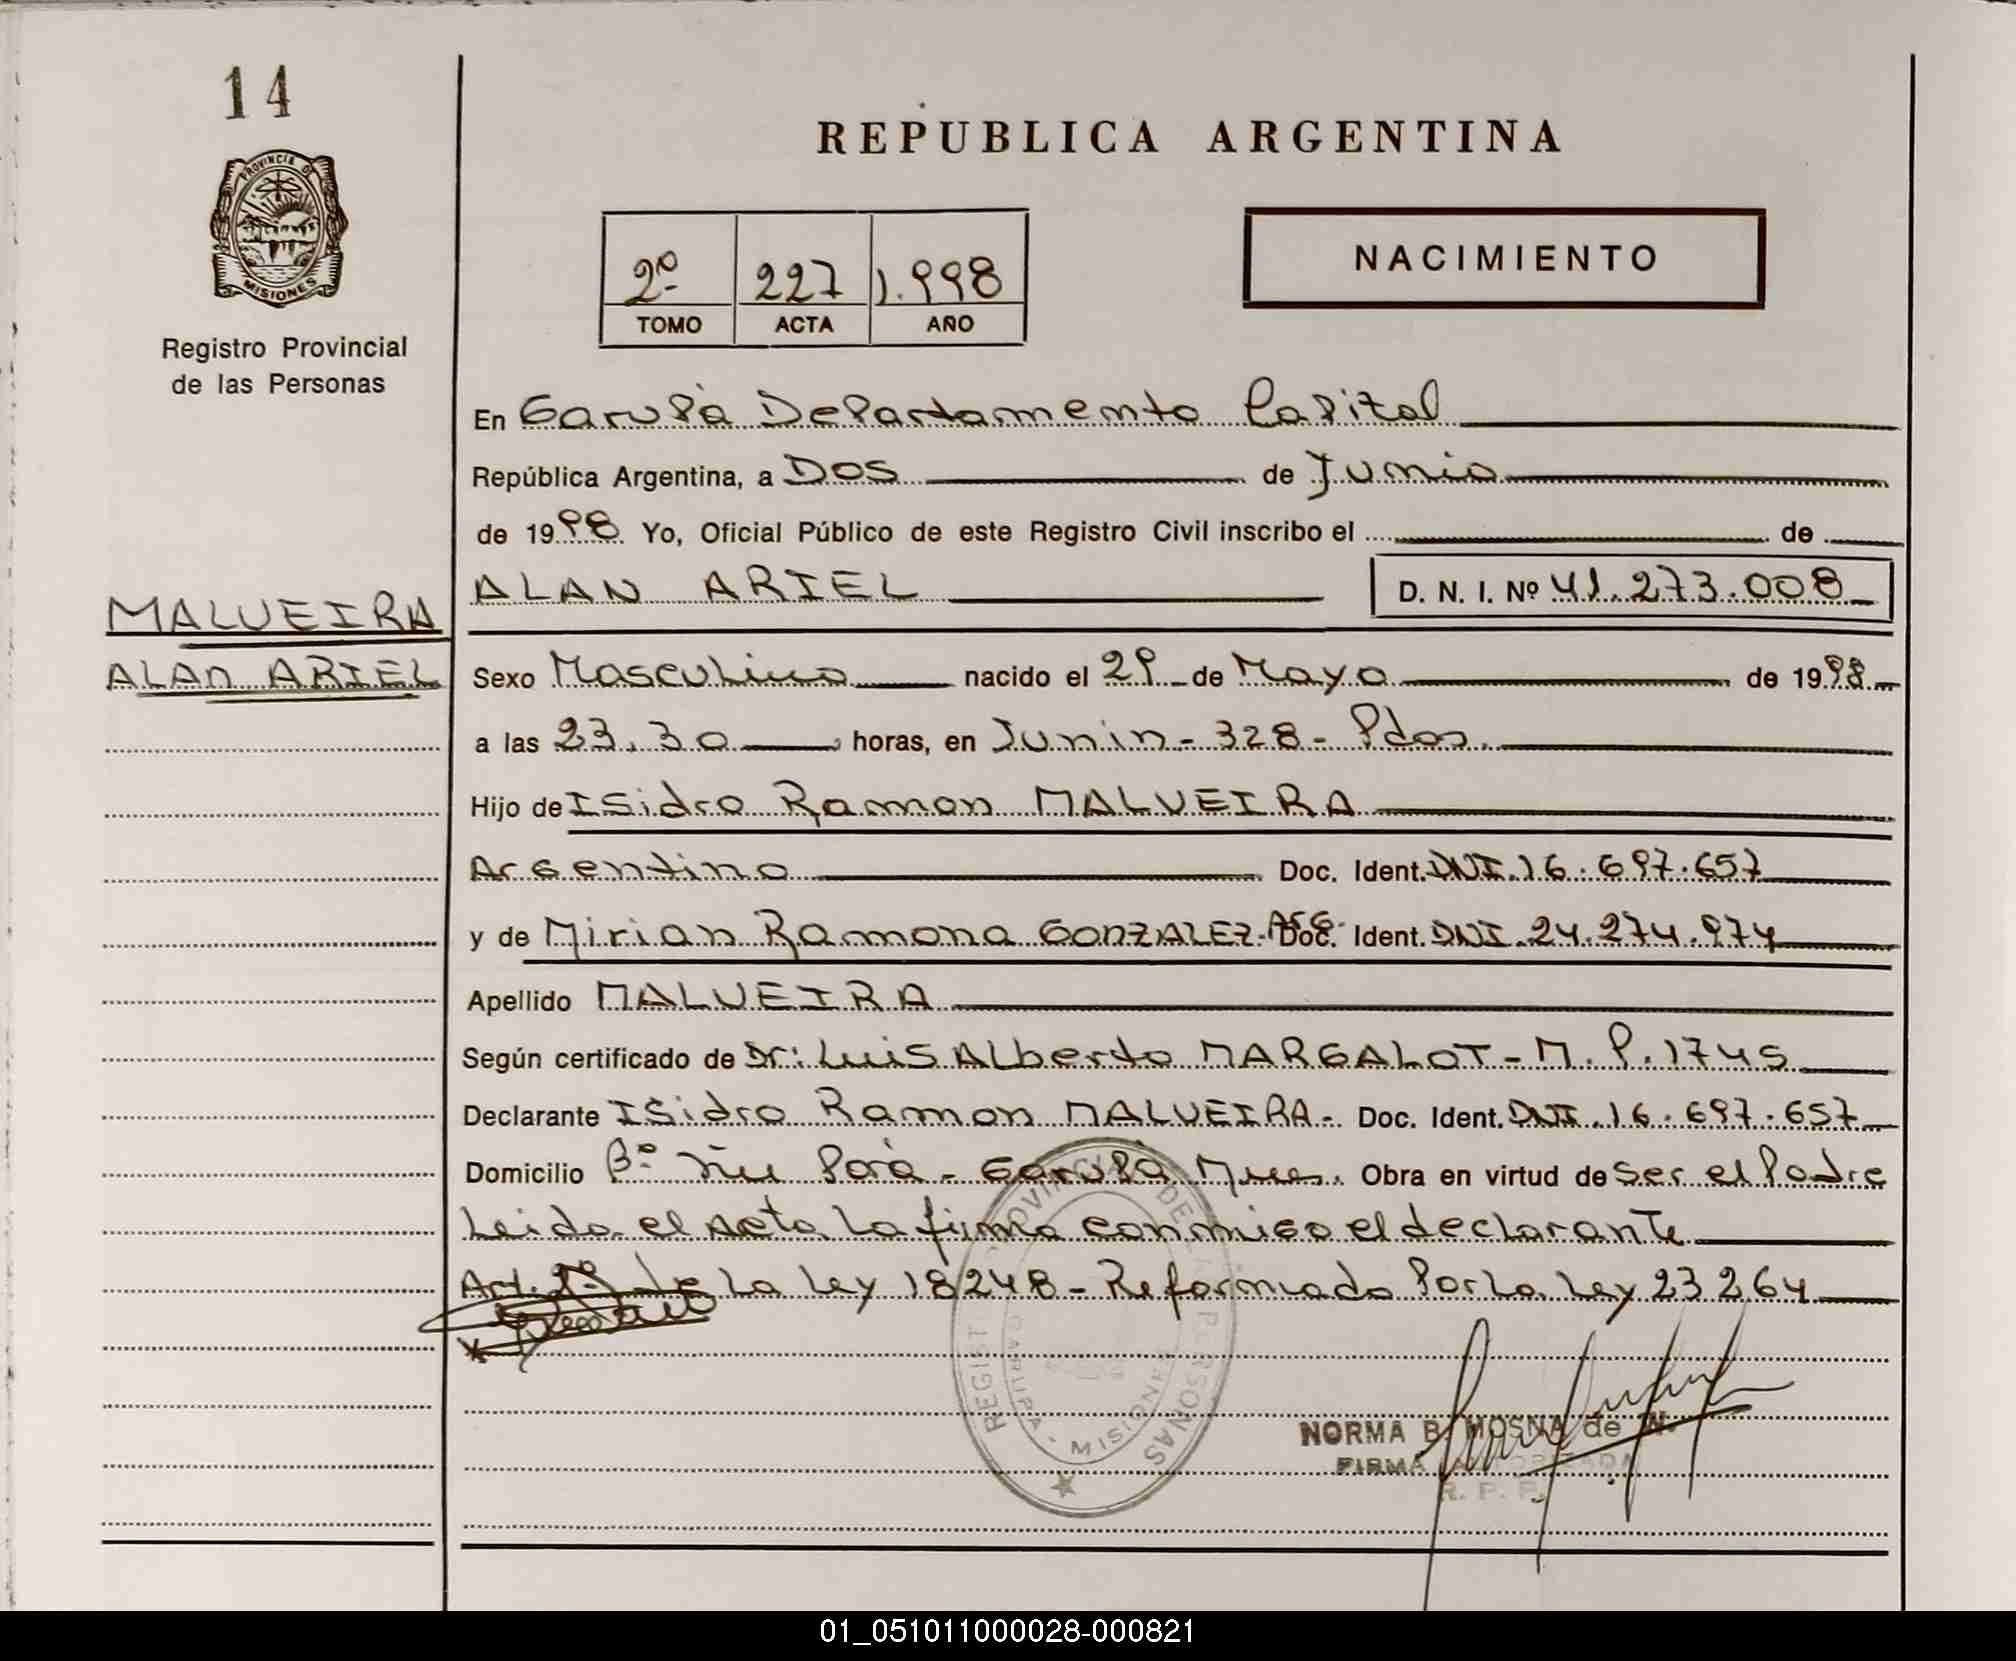 14
PROVINCIA DE
MISIONES
Registro Provincial
de las Personas
REPUBLICA ARGENTINA
2º 227 1.998
TOMO ACTA AÑO
NACIMIENTO
En Garupà Departamento Capital
República Argentina, a Dos de Junio
de 1998 Yo, Oficial Público de este Registro Civil inscribo el de
MALVEIRA
ALAN ARIEL
ALAN ARIEL D. N. I. Nº 41.273.008
Sexo Masculino nacido el 29 de Mayo de 1998
a las 23.30 horas, en Junin - 328 - Pdas.
Hijo de Isidro Ramon MALVEIRA
Argentino Doc. Ident. DNI.16.697.657
y de Mirian Ramona GONZALEZ - Arg. Doc. Ident. DNI.24.274.974
Apellido MALVEIRA
Según certificado de Dr: Luis Alberto MARGALOT - M.P.1745
Declarante Isidro Ramon MALVEIRA - Doc. Ident. DNI.16.697.657
Domicilio Bº Ñu Porà - Garupà Mnes. Obra en virtud de ser el Padre
Leida el acta la firma conmigo el declarante
Art. de la Ley 18248 - Reformado Por la Ley 23264
REGISTRO PROVINCIAL DE LAS PERSONAS
GARUPA - MISIONES
NORMA B. MOSNA de N.
FIRMA AUTORIZADA
R. P. P.
01_051011000028-000821